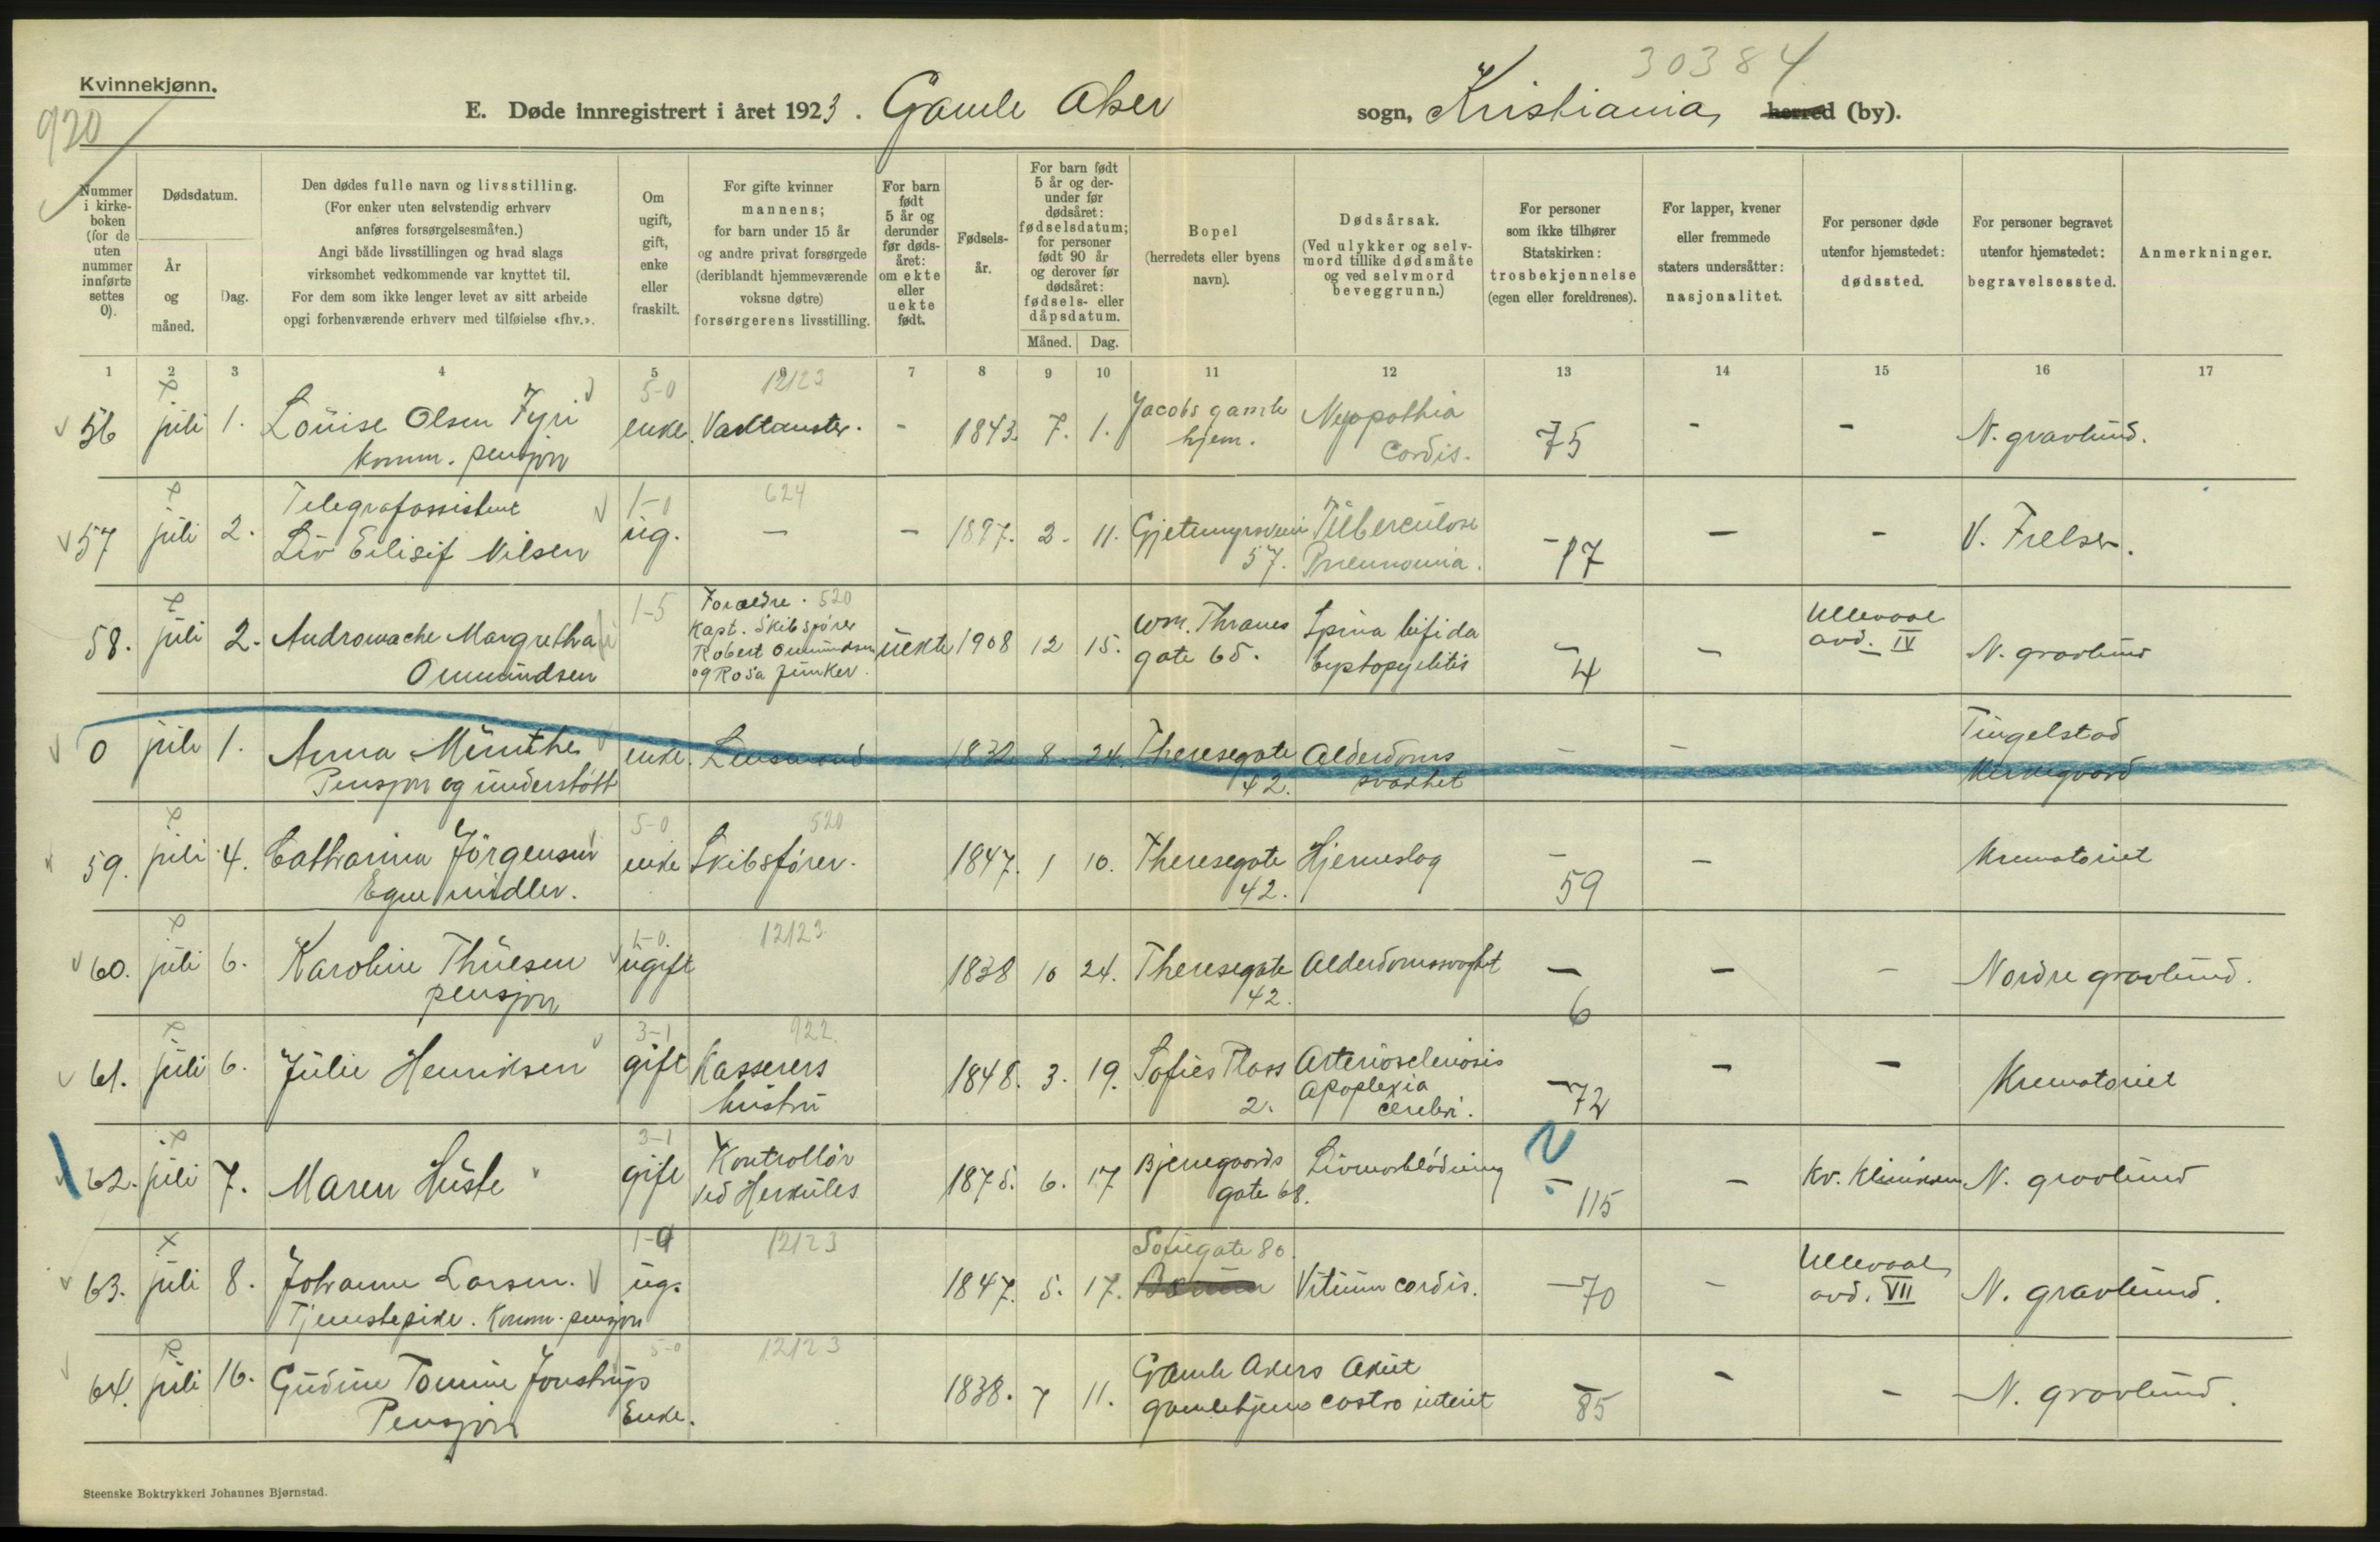 30384
Kvinnekjønn.
920
E. Døde innregistrert i året 1923. Gamle Aker sogn, Kristiania herred (by).
Nummer i kirkeboken (for de uten nummer innførte settes 0).
Dødsdatum.
År og måned.
Dag.
Den dødes fulle navn og livsstilling.
(For enker uten selvstendig erhverv anføres forsørgelsesmåten.)
Angi både livsstillingen og hvad slags virksomhet vedkommende var knyttet til.
For dem som ikke lenger levet av sitt arbeide opgi forhenværende erhverv med tilføielse «fhv.».
Om ugift, gift, enke eller fraskilt.
For gifte kvinner mannens; for barn under 15 år og andre privat forsørgede (deriblandt hjemmeværende voksne døtre) forsørgerens livsstilling.
For barn født 5 år og derunder før dødsåret: om ekte eller uekte født.
Fødselsår.
For barn født 5 år og derunder før dødsåret: fødselsdatum; for personer født 90 år og derover før dødsåret: fødsels- eller dåpsdatum.
Måned. Dag.
Bopel
(herredets eller byens navn).
Dødsårsak.
(Ved ulykker og selvmord tillike dødsmåte og ved selvmord beveggrunn.)
For personer som ikke tilhører Statskirken: trosbekjennelse (egen eller foreldrenes).
For lapper, kvener eller fremmede staters undersåtter: nasjonalitet.
For personer døde utenfor hjemstedet: dødssted.
For personer begravet utenfor hjemstedet: begravelsessted.
Anmerkninger.
1 2 3 4 5 6 7 8 9 10 11 12 13 14 15 16 17
5-0 12123
56 juli 1. Louise Olsen Fyri enke. - 1843. 7. 1. Jacobs gamle hjem. Myopathia cordis. 75 - - N. gravlund.
Komm. pensjon
1-0 624
57 juli 2. Telegrafassistent
Liv Eilisif Nilsen ug. - - 1897. 2. 11. Gjetemyrsveien 57. Tuberculose Pneumonia. - 17 - - V. Frelser.
1-5 520
58. juli 2. Andromache Margretha Omundsen
Foræeldre.
Kapt. Skibsfører
Robert Omundsen
og Rosa Junker.
uekte 1908 12 15. Wm. Thranes gate 65. Spina bifida - 4 - Ullevaal avd. IV N. gravlund
0 juli 1. Anna Münthe enke. Lensmand 1832 8 24. Theresegate 42. Alderdoms svakhet - - Tingelstad Kirkegaard
Pensjon og understøtt
5-0 520
59. juli 4. Cathrina Jörgensen enke Skibsfører. 1847. 1 10. Theresegate 42. Hjerneslag - 59 - Krematoriet
Egne midler.
1-0 12123
60. juli 6. Karoline Thuesen ugift 1838 10 24. Theresegate 42. Alderdomssvakhet - 6 - - Nordre gravlund.
pensjon
3-1 922
61. juli 6. Julie Henriksen gift Kasserers hustru 1848. 3. 19. Sofies Plass 2. Arteriosclerosis Apoplexia cerebri. - 72 - - Krematoriet
3-1
62. juli 7. Maren Huste gift Kontrollör ved Herkules 1875. 6. 17 Bjerregaards gate 68. Livmorblödning - 115 - Kv. Klinikken N. gravlund
1-0 12123
63. juli 8. Johanne Larsen. ug. 1847. 5. 17. Sofiegate 80. Vitium cordis. - 70 - Ullevaal avd. VII N. gravlund.
Tjenestepike. Komm. pensjon
5-0 12123
64. juli 16. Gudine Tomine Jonstrup Enke. 1838. 7 11. Gamle Akers gamlehjem Akut castro interit - 85 - - N. gravlund.
Pensjon
Steenske Boktrykkeri Johannes Bjørnstad.